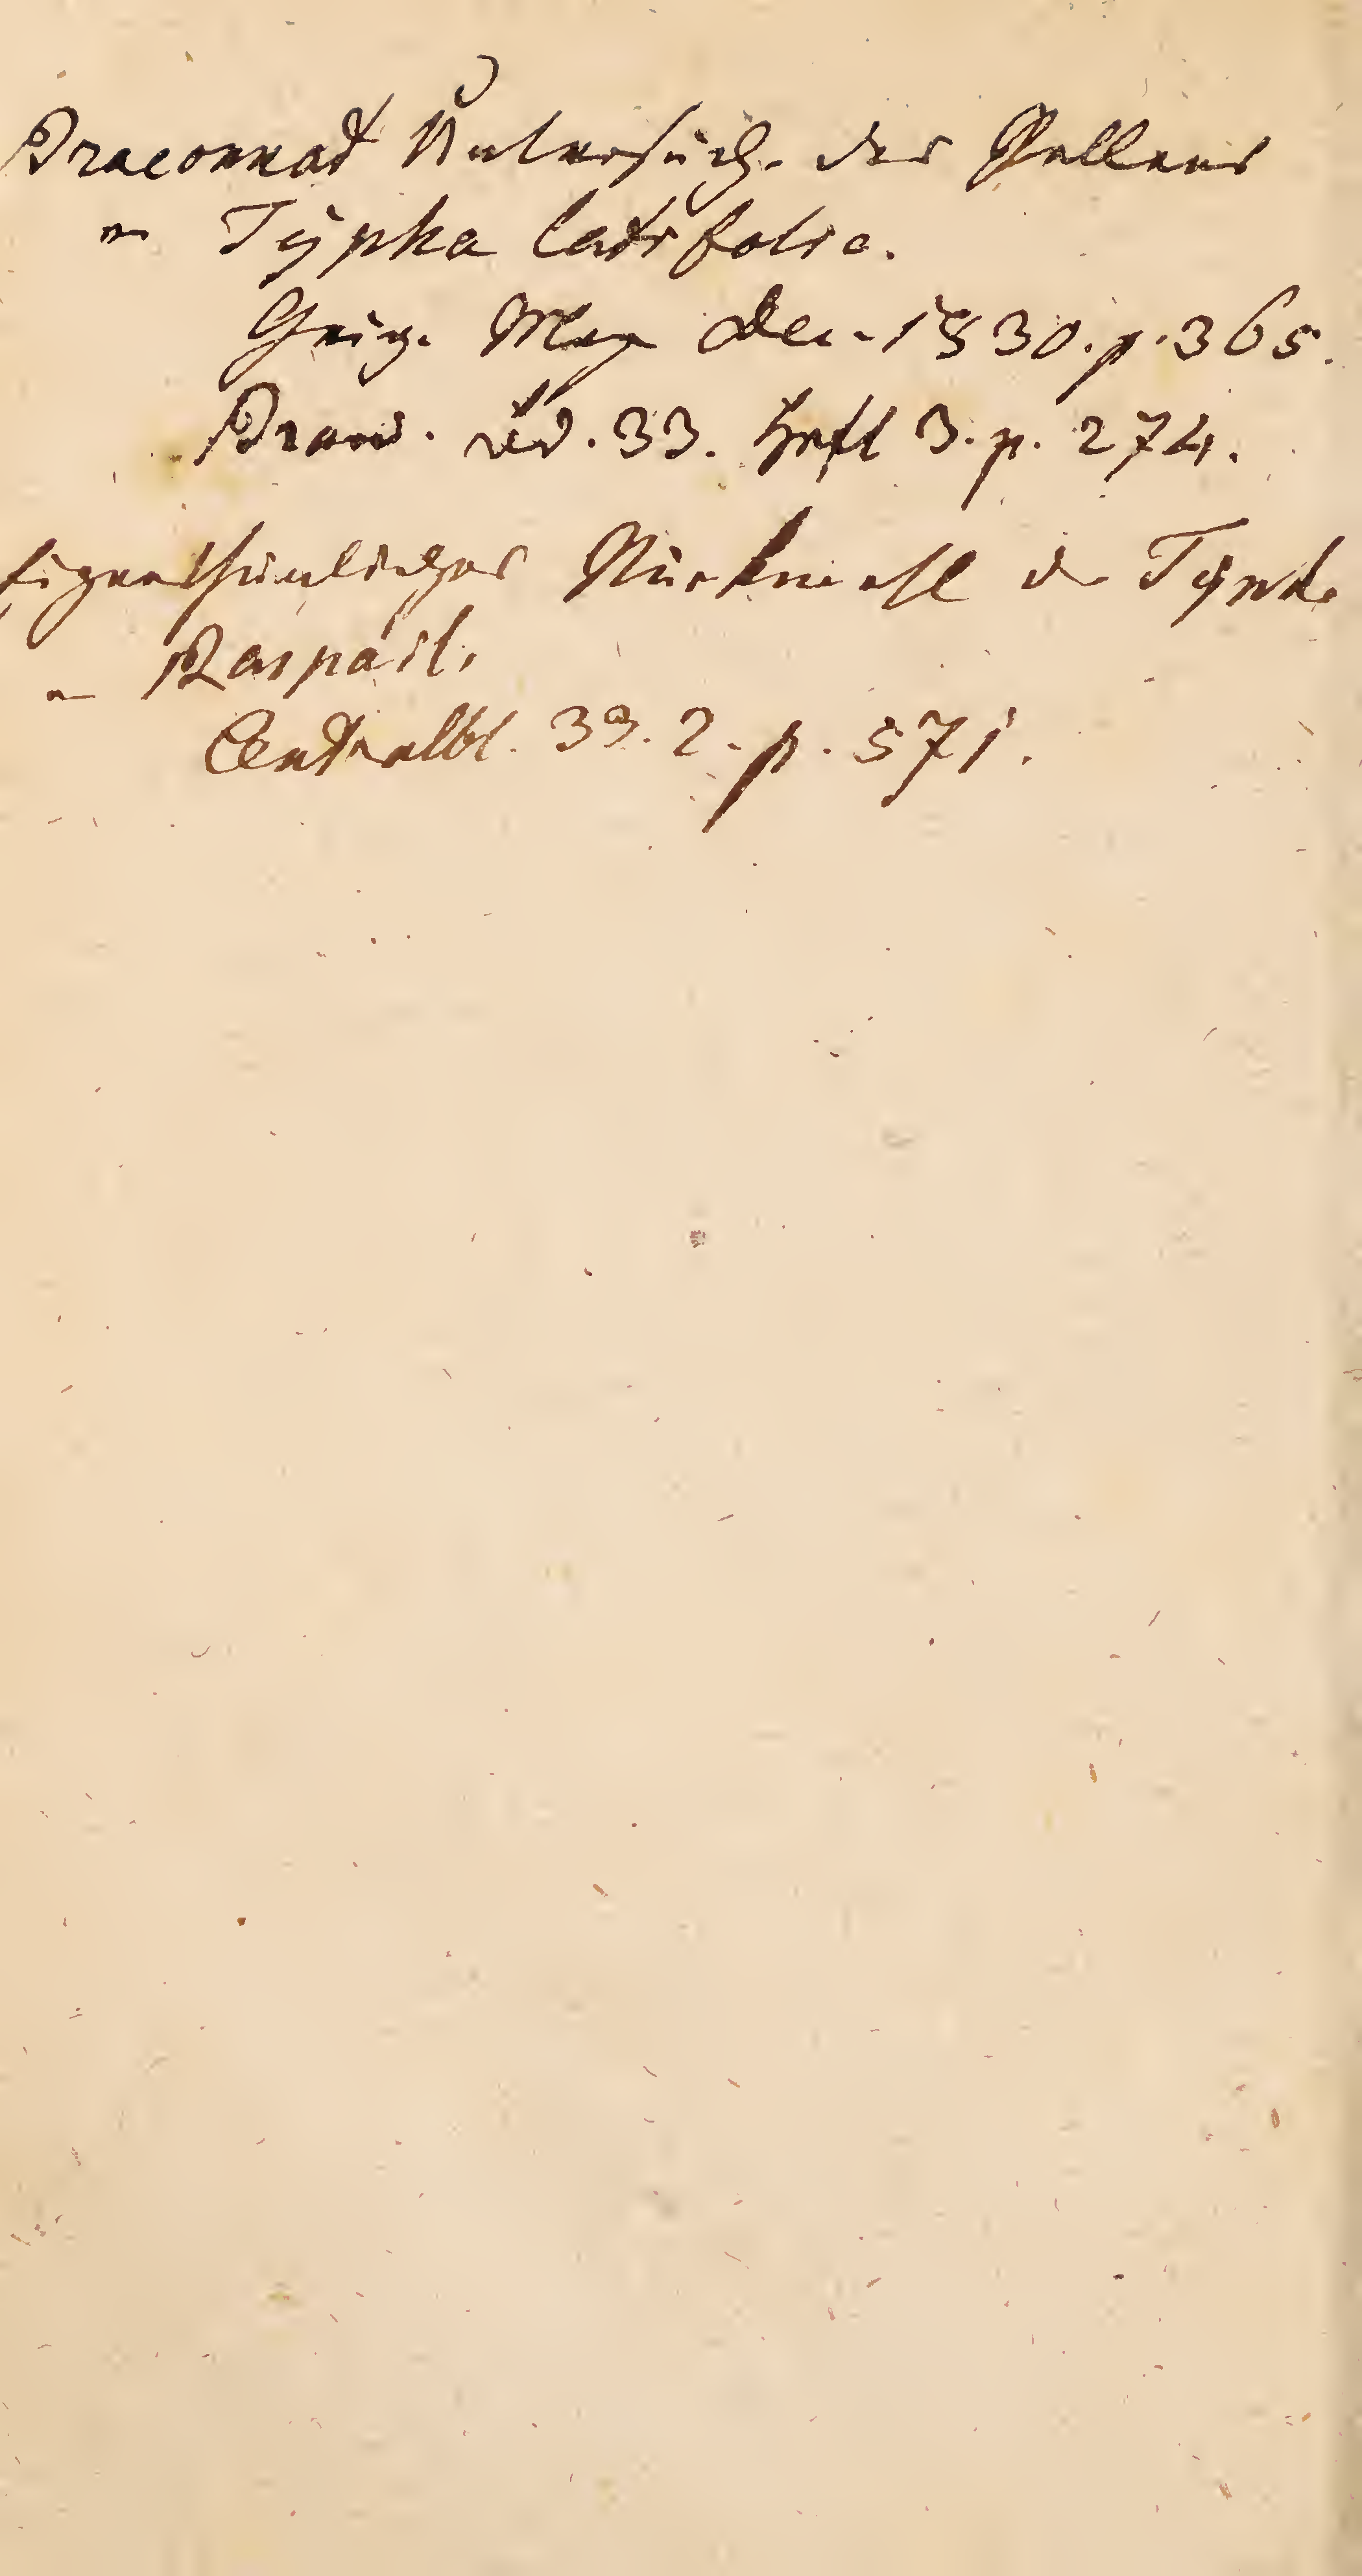 Braconnot Untersuch. des Pollens
v Typha latifolia.
Geig. Mag Dec. 1830. p. 365.
Brand. Bd. 33. Heft 3. p. 274.
Eigenthümliches Stärkmehl d Typh.
v Raspail.
Centralbl. 33. 2. p. 571.